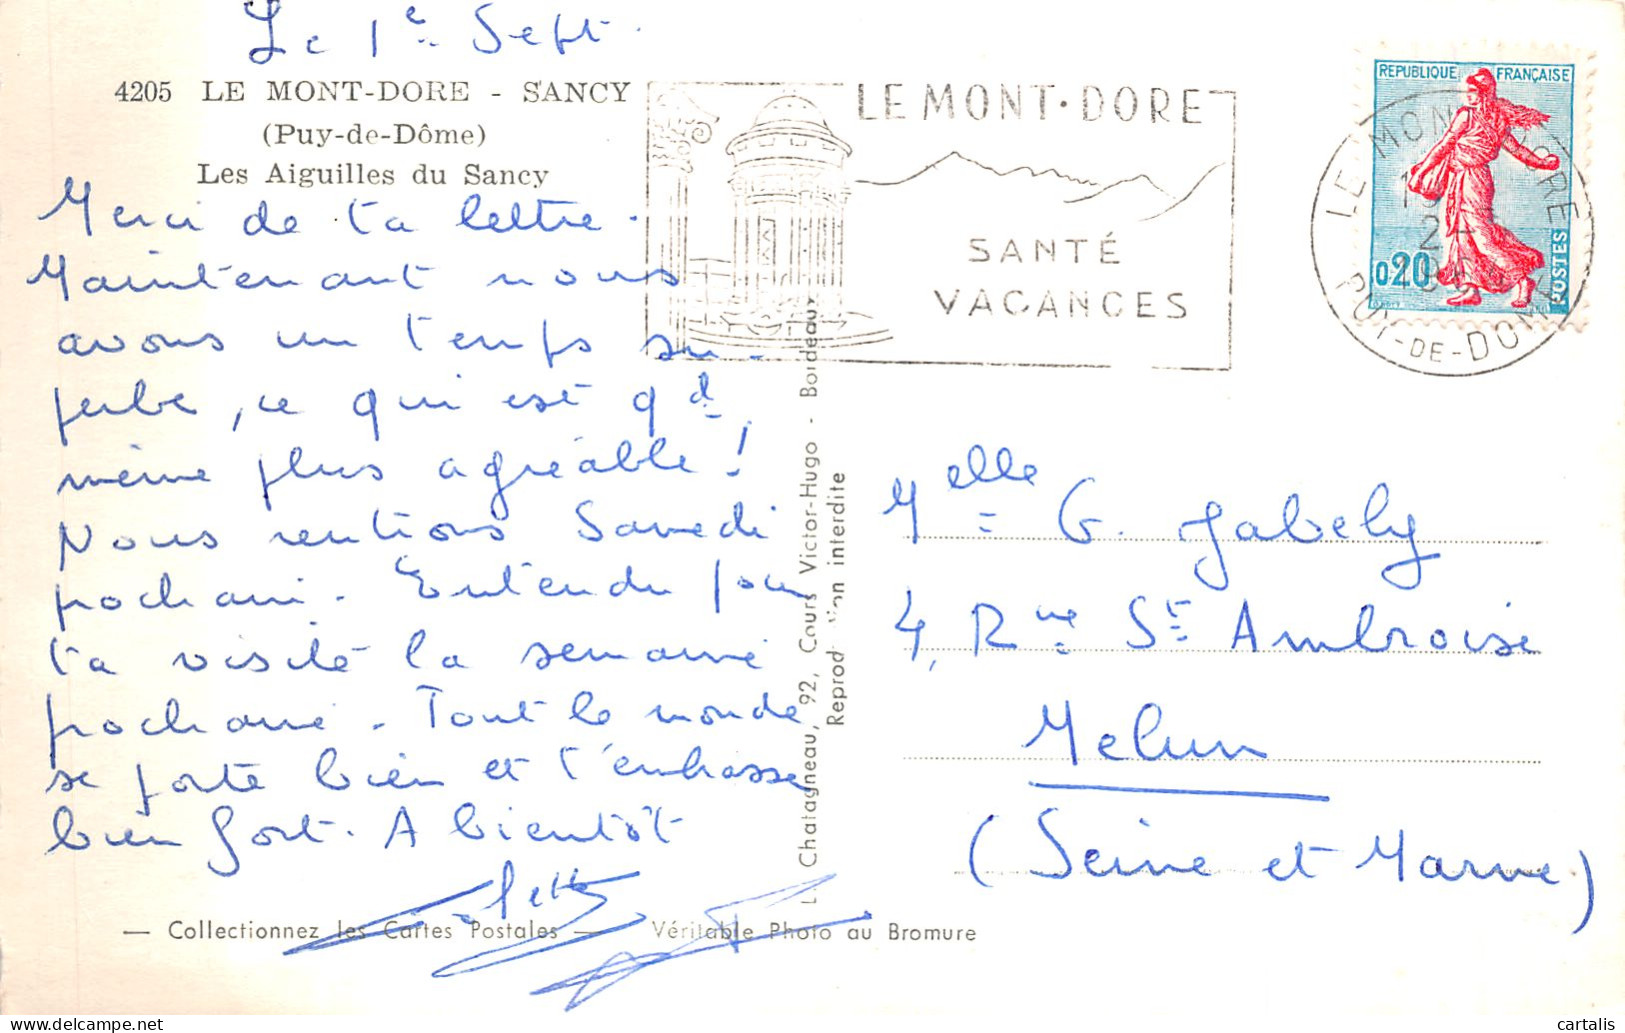 Le 1e Sept.
4205 LE MONT-DORE - SANCY
(Puy-de-Dôme)
Les Aiguilles du Sancy
Merci de ta lettre.
Maintenant nous
avons un temps su-
perbe, ce qui est qd
même plus agréable !
Nous rentrons Samedi
prochain. Entendu pour
ta visite la semaine
prochaine. Tout le monde
se porte bien et t'embrasse
bien fort. A bientôt
— Collectionnez les Cartes Postales — Véritable Photo au Bromure
Chatagneau, 92, Cours Victor-Hugo - Bordeaux
interdite
LE MONT·DORE
SANTÉ
VACANCES
REPUBLIQUE FRANÇAISE
0,20
POSTES
LE MONT-DORE
PUY-DE-DOME
Melle G. Jabely
4, Rue St Ambroise
Melun
(Seine et Marne)
cartalis
delcampe.net